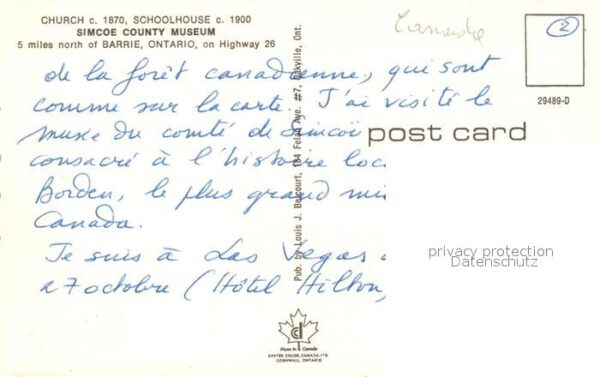 CHURCH c. 1870, SCHOOLHOUSE c. 1900
SIMCOE COUNTY MUSEUM
5 miles north of BARRIE, ONTARIO, on Highway 26
2
29489-D
de la forêt canadienne, qui sont
comme sur la carte. J'ai visité le
musée du comté de Simcoë
consacré à l'histoire loc
Borden, le plus grand
Canada.
Je suis à Las Vegas
27 octobre (Hôtel Hilton,
post card
Pub. by Louis J. Belcourt, 184 Felan Ave. #7, Oakville, Ont.
privacy protection
Datenschutz
Made in Canada
DEXTER COLOR CANADA LTD
CORNWALL, ONTARIO